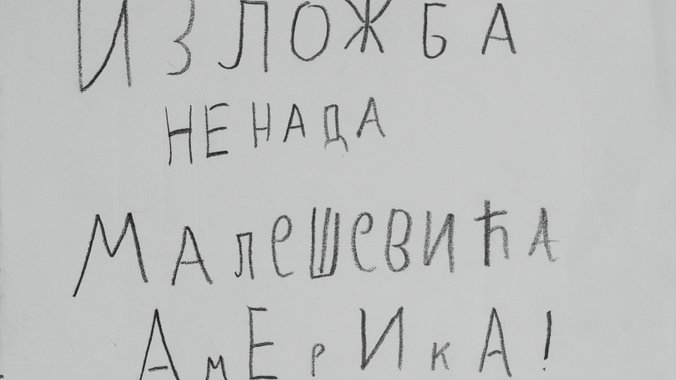 ИЗЛОЖБА
НЕНАДА
МАЛЕШЕВИЋА
АмЕрИкА!